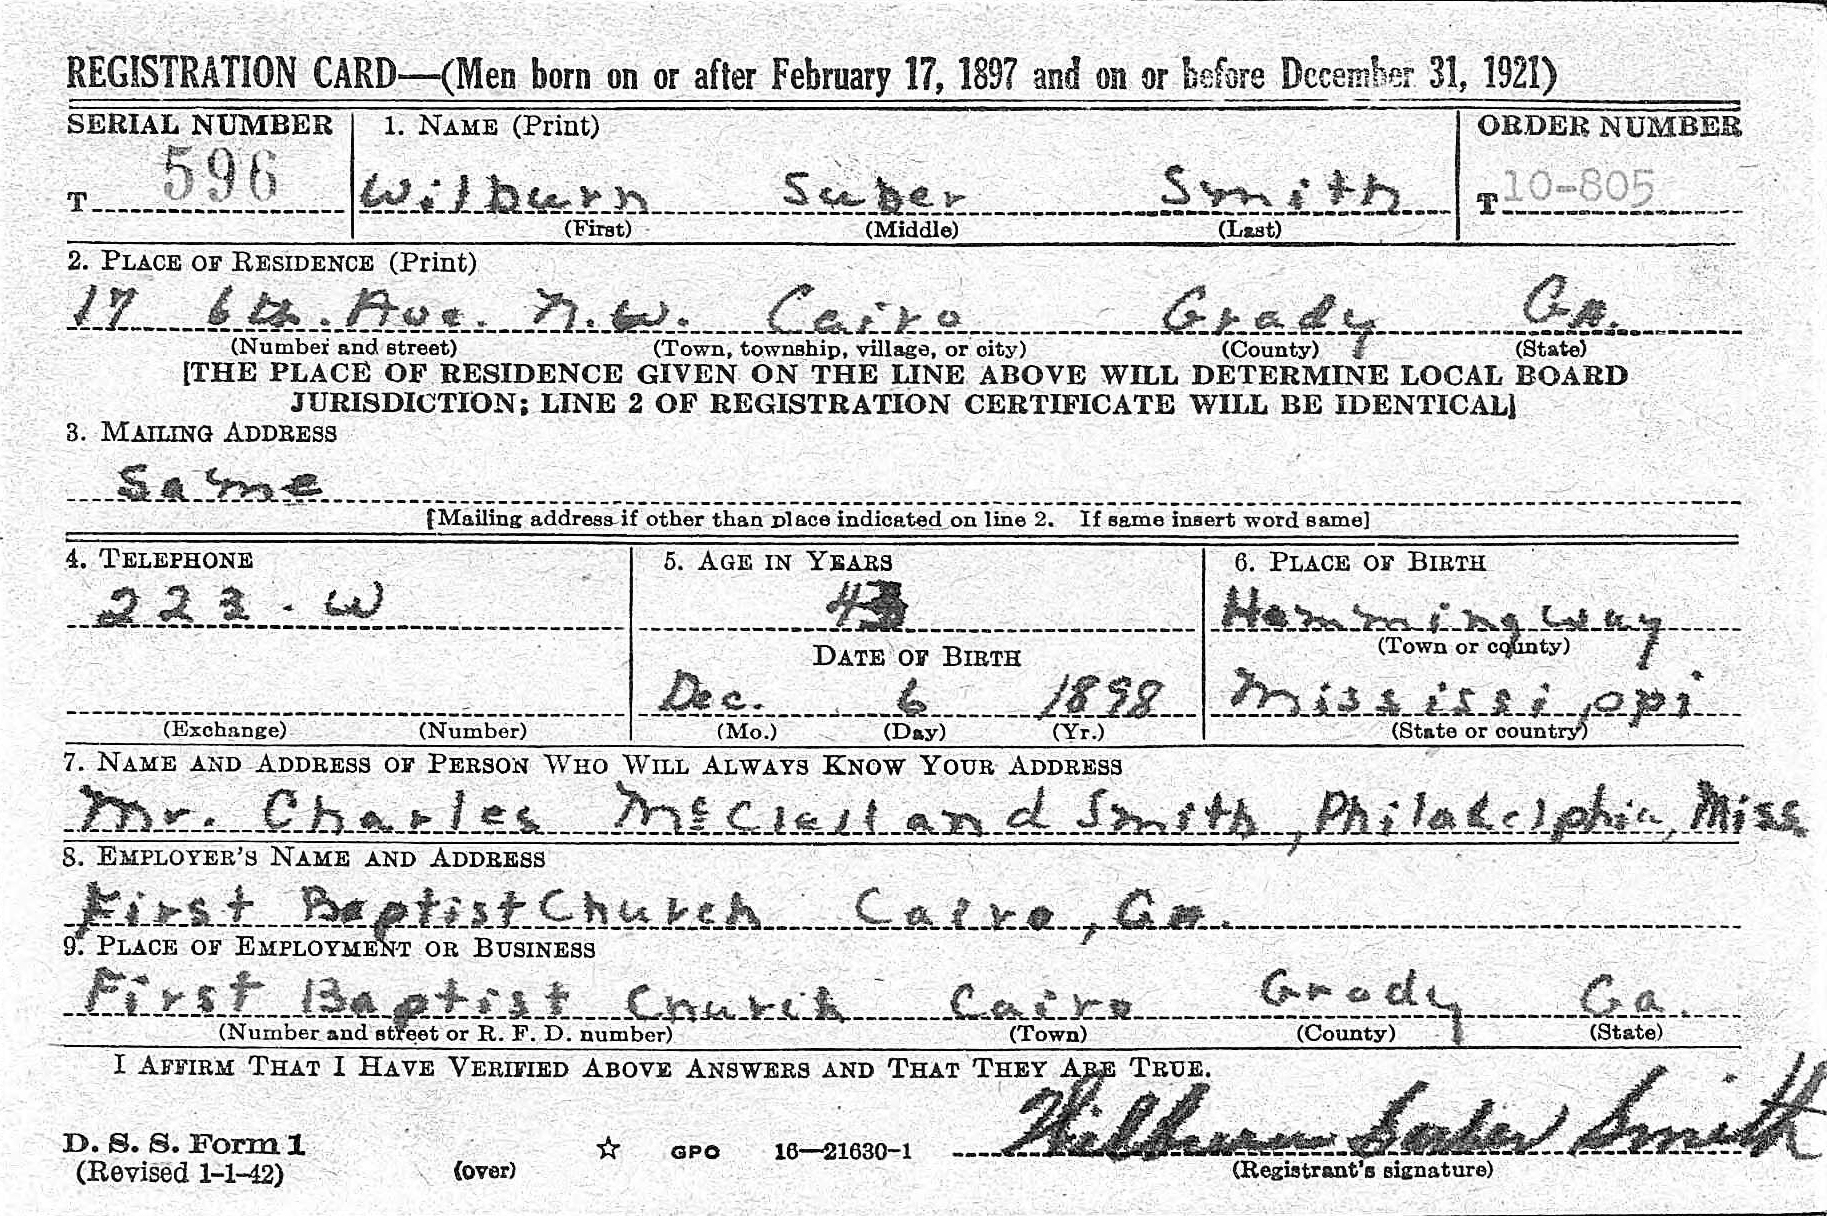 REGISTRATION CARD—(Men born on or after February 17, 1897 and on or before December 31, 1921)
SERIAL NUMBER 1. NAME (Print) ORDER NUMBER
T 596 Wilburn Suber Smith T 10-805
(First) (Middle) (Last)
2. PLACE OF RESIDENCE (Print)
17 6th. Ave. N.W. Cairo Grady Ga.
(Number and street) (Town, township, village, or city) (County) (State)
[THE PLACE OF RESIDENCE GIVEN ON THE LINE ABOVE WILL DETERMINE LOCAL BOARD
JURISDICTION; LINE 2 OF REGISTRATION CERTIFICATE WILL BE IDENTICAL]
3. MAILING ADDRESS
Same
[Mailing address if other than place indicated on line 2. If same insert word same]
4. TELEPHONE 5. AGE IN YEARS 6. PLACE OF BIRTH
223-W 43 Hemmingway
(Town or county)
DATE OF BIRTH
Dec. 6 1898 Mississippi
(Exchange) (Number) (Mo.) (Day) (Yr.) (State or country)
7. NAME AND ADDRESS OF PERSON WHO WILL ALWAYS KNOW YOUR ADDRESS
Mr. Charles McClelland Smith, Philadelphia, Miss.
8. EMPLOYER'S NAME AND ADDRESS
First Baptist Church Cairo, Ga.
9. PLACE OF EMPLOYMENT OR BUSINESS
First Baptist Church Cairo Grady Ga.
(Number and street or R. F. D. number) (Town) (County) (State)
I AFFIRM THAT I HAVE VERIFIED ABOVE ANSWERS AND THAT THEY ARE TRUE.
Wilburn Suber Smith
D. S. S. Form 1
(Revised 1-1-42) (over) ☆ GPO 16—21630-1 (Registrant's signature)